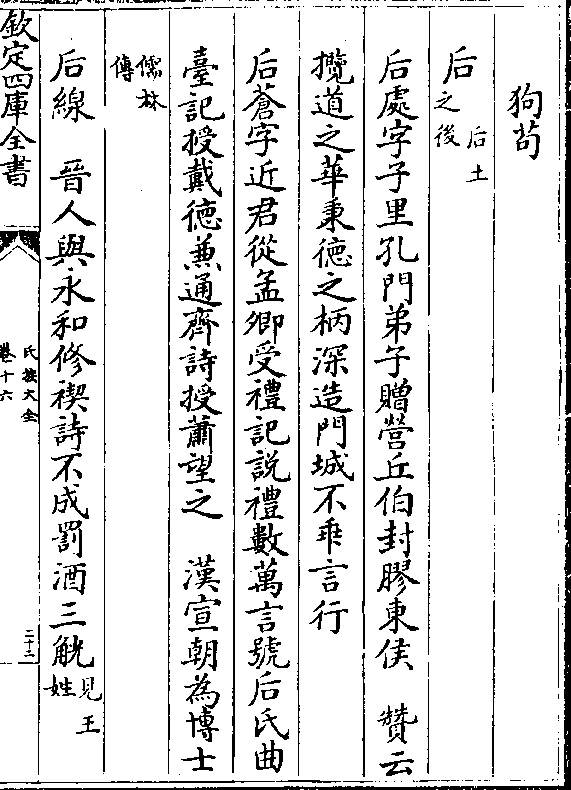 狗苟
后后土之後
后處字子里孔門弟子贈營丘伯封膠東侯　贊云
攬道之華秉德之柄深造門城不垂言行
后蒼字近君從孟卿受禮記說禮數萬言號后氏曲
臺記授戴德兼通齊詩授蕭望之　漢宣朝為博士
儒林傳
后線　晉人與永和修禊詩不成罰酒三觥見王姓
欽定四庫全書
氏族大全
卷十六
二十二